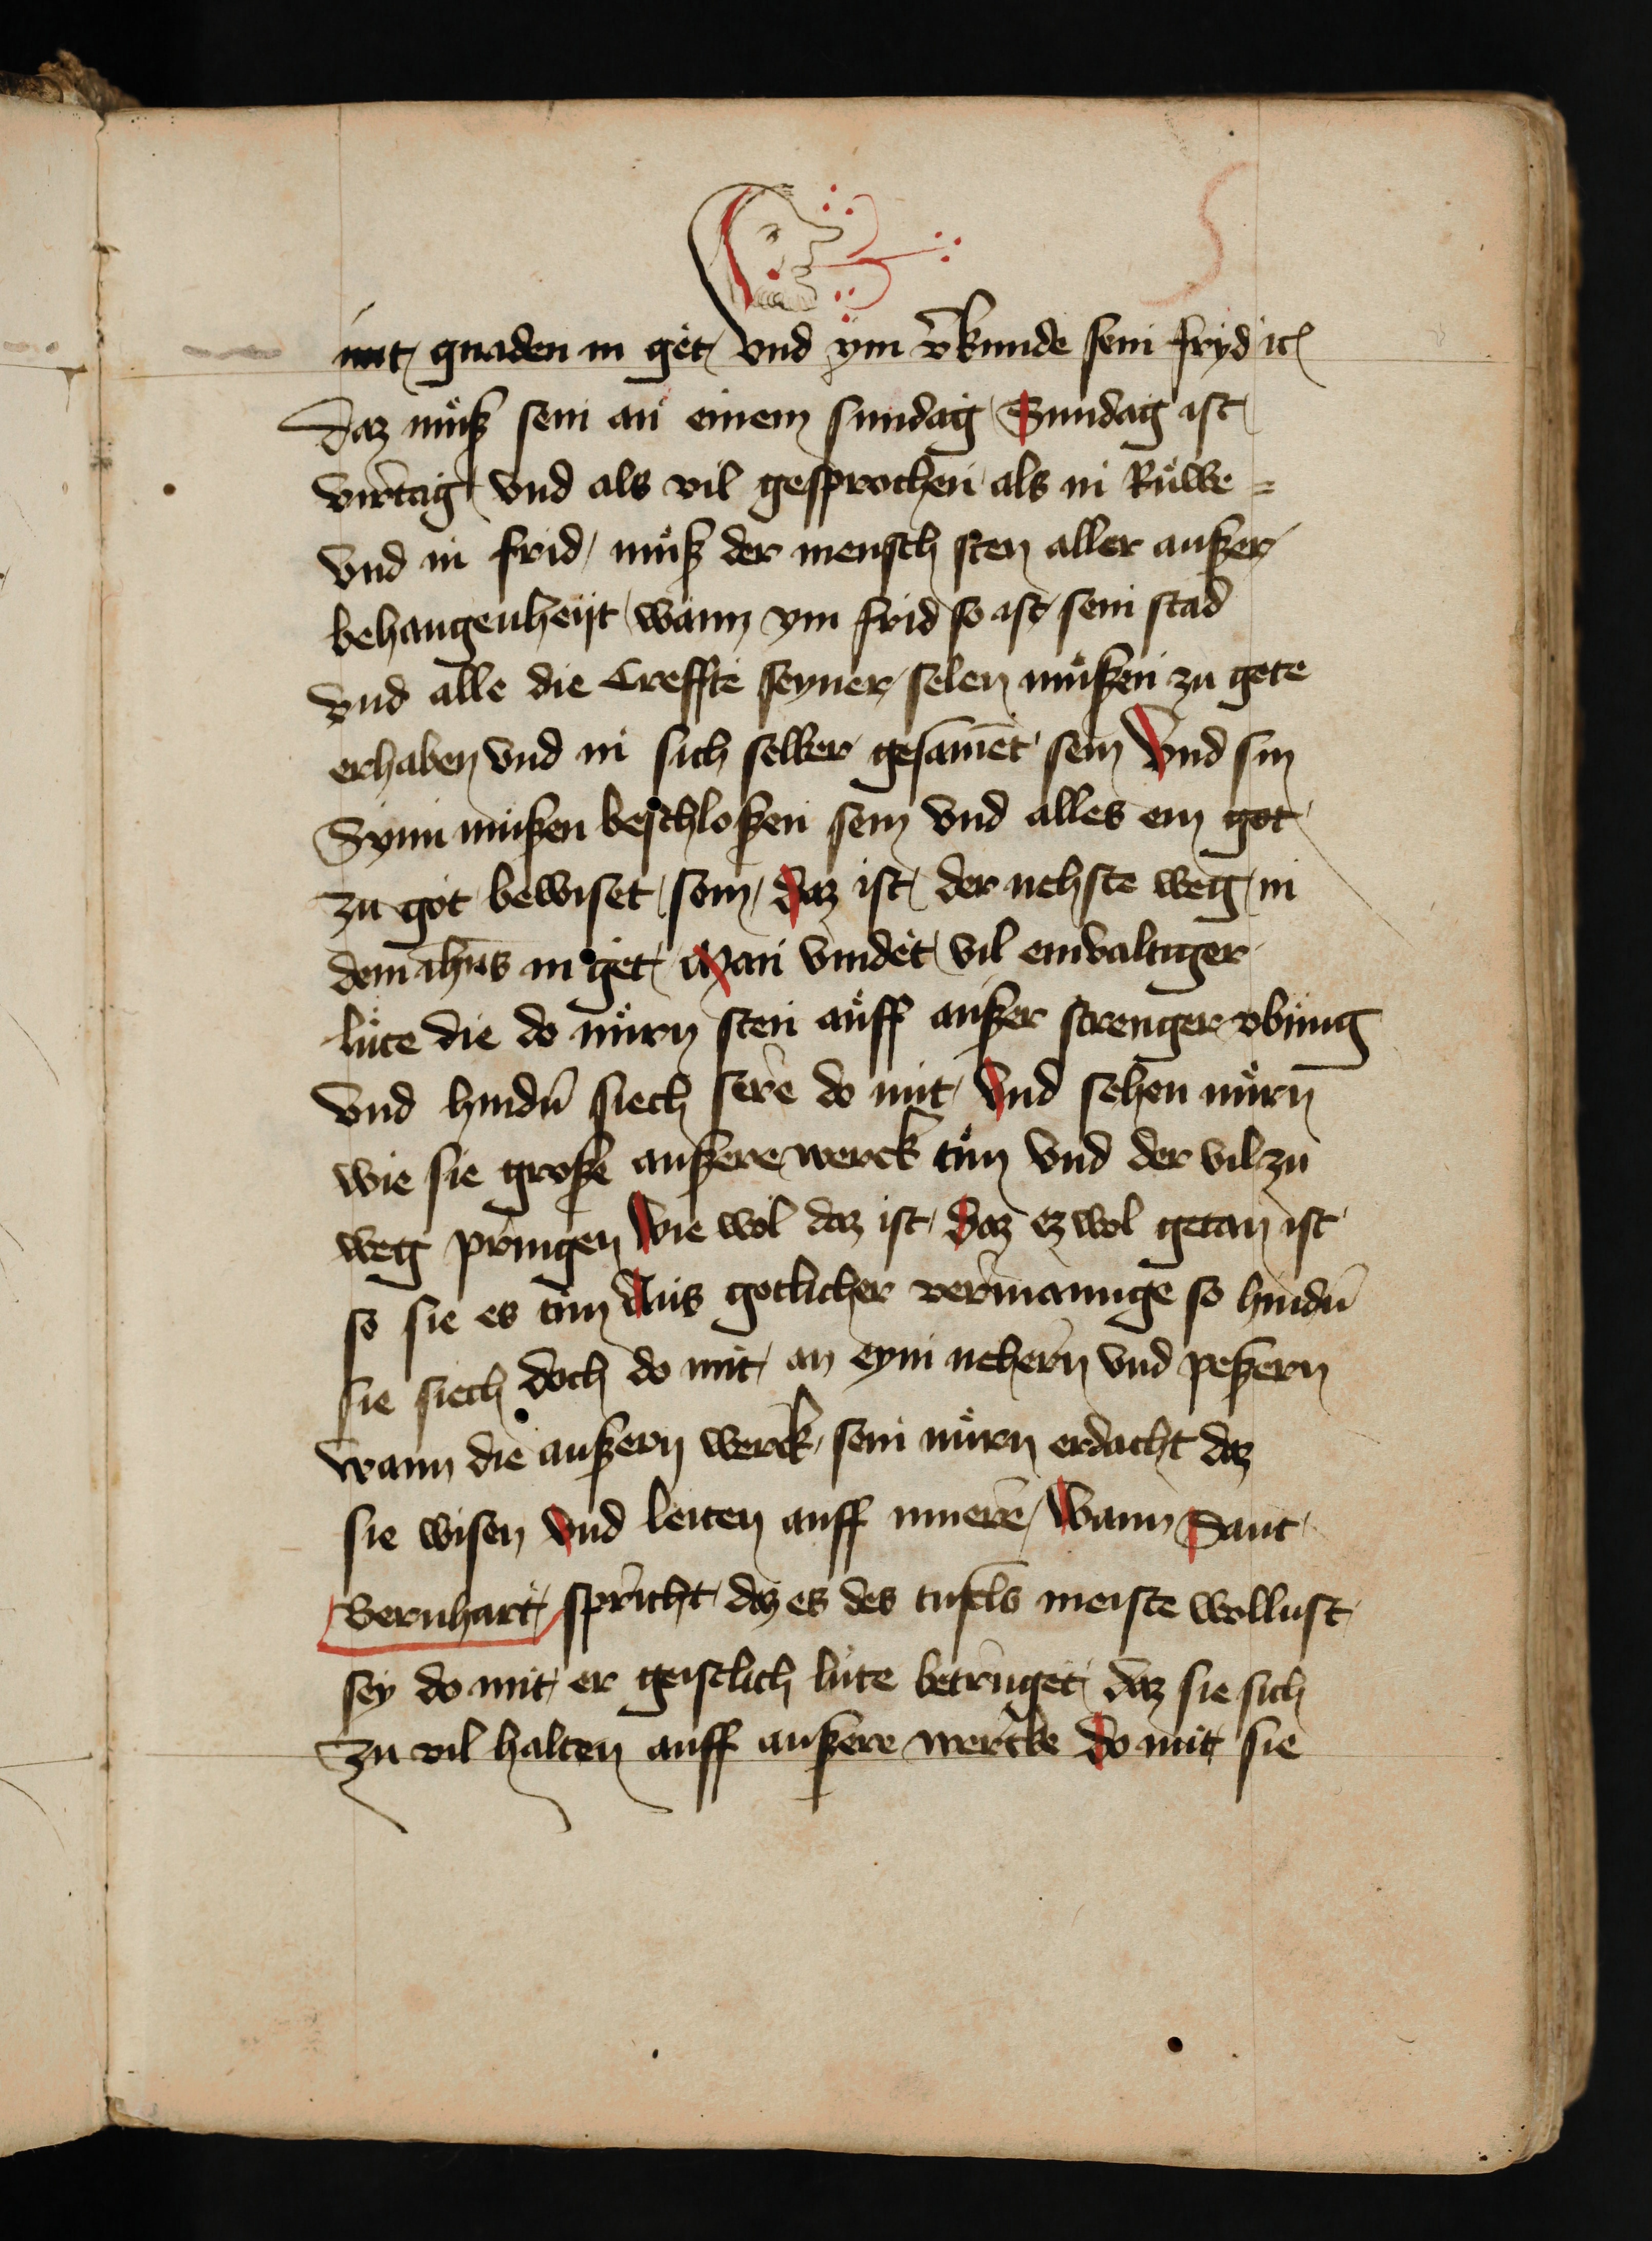 mit gnaden in get vnd ym v̄kunde sein fryd ic
Daz muͦß sein an einem sundag Sundag ist
virtag vnd als vil gesprochen als in Ruͦwe =
vnd in frid muͦß der mensch sten aller außer
behangenheijt wann ym frid so ist sein stad
vnd alle die Creffte seyner selen muͦßen zu gote
erhaben vnd in sich selber gesamēt sein Vnd sin
Synn mußen beschloßen sein vnd alles ein got
zu got bewiset sein daz ist der nehste weg in
dem ihūs in get Man vindet vil einvaltiger
luͦte die do nuͦrn sten auͦff außer strenger vbung
vnd hindn̄ siech sere do mit Vnd sehen nuͦrn
wie sie große außere werck tuͦn vnd der vil zu
weg pringen Wie wol daz ist daz ez wol getan ist
so sie es tun Aus gotlicher vermanunge so hindn̄
sie siech doch do mit an eym nehern vnd peßern
wann die außern werck sein nuͦrn erdacht daz
sie wisen vnd leiten auff innere Wann Sant
Bernhart spricht daz es des tufels meiste wollust
sey do mit er geistlich lute betruget daz sie sich
zu vil halten auff außere wercke do mit sie